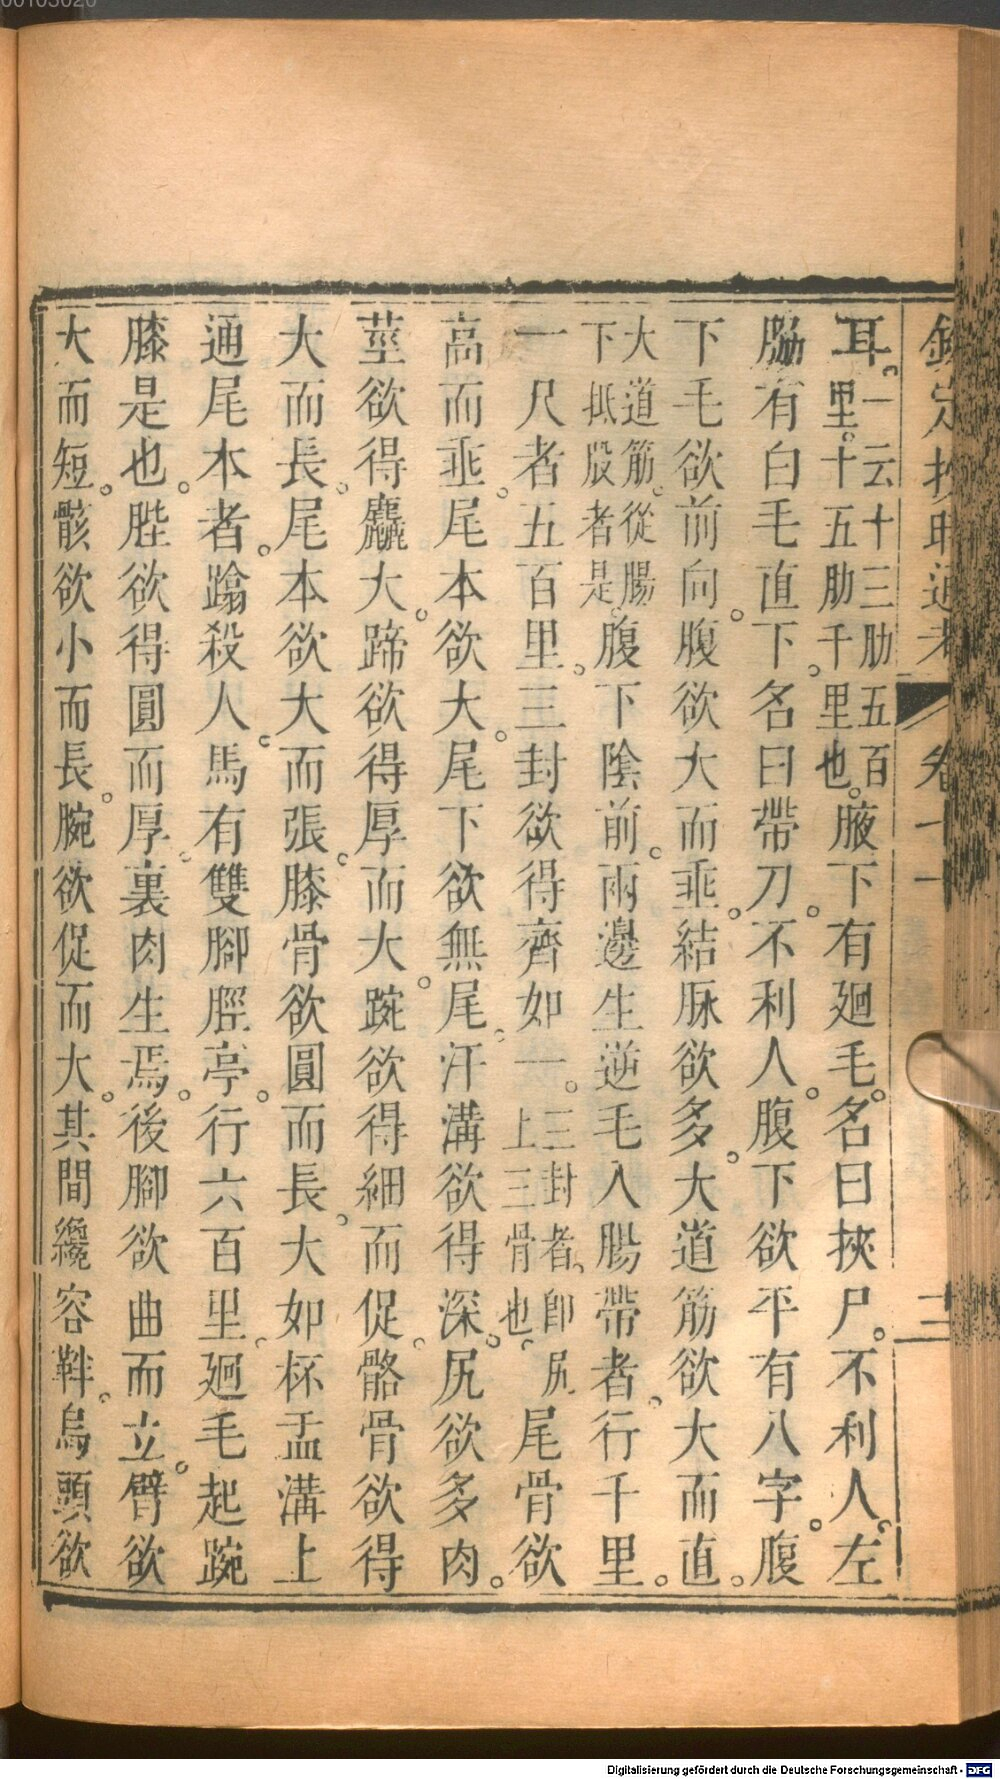 欽定授時通考 卷 二
耳。一云十三肋五百
里。十五肋千里也。腋下有廻毛。名曰挾尸。不利人。左
脇有白毛直下。名曰帶刀。不利人。腹下欲平有八字。腹
下毛欲前向。腹欲大而垂。結脉欲多。大道筋欲大而直。
大道筋。從腸
下抵股者是。腹下陰前。兩邊生逆毛入腸帶者。行千里。
一尺者。五百里。三封欲得齊如一。三封者。卽尻
上三骨也。尾骨欲
高而垂。尾本欲大。尾下欲無尾。汗溝欲得深。尻欲多肉。
莖欲得麤大。蹄欲得厚而大。踠欲得細而促。髂骨欲得
大而長。尾本欲大而張。膝骨欲圓而長。大如杯盂溝上
通尾本者。蹹殺人。馬有雙腳脛亭。行六百里。廻毛起踠
膝是也。䏶欲得圓而厚。裏肉生焉。後腳欲曲而立。臂欲
大而短。骸欲小而長。腕欲促而大。其間纔容靽。烏頭欲
Digitalisierung gefördert durch die Deutsche Forschungsgemeinschaft - DFG